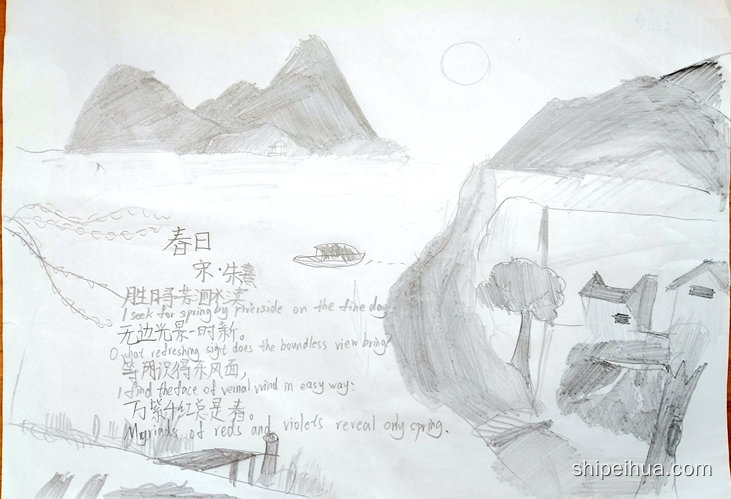 春日
宋·朱熹
胜日寻芳泗水滨
I seek for spring by riverside on the fine day
无边光景一时新。
O what refreshing sight does the boundless view bring
等闲识得东风面,
I find the face of vernal wind in easy way:
万紫千红总是春。
Myriads of reds and violets reveal only spring.
shipeihua.com